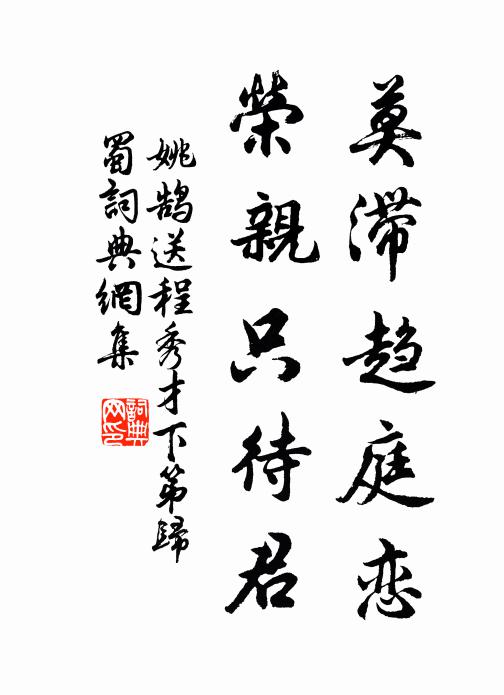 莫滞趋庭恋
榮親只待君
姚鹄送程秀才下第歸
蜀詞典網集
詞典
网印